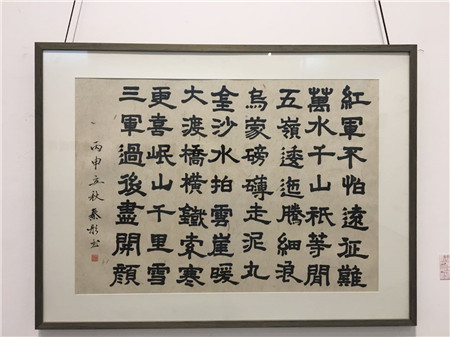 紅軍不怕遠征難
萬水千山祇等閒
五嶺逶迤騰細浪
烏蒙磅礴走泥丸
金沙水拍雲崖暖
大渡橋橫鐵索寒
更喜岷山千里雪
三軍過後盡開顏
丙申立秋